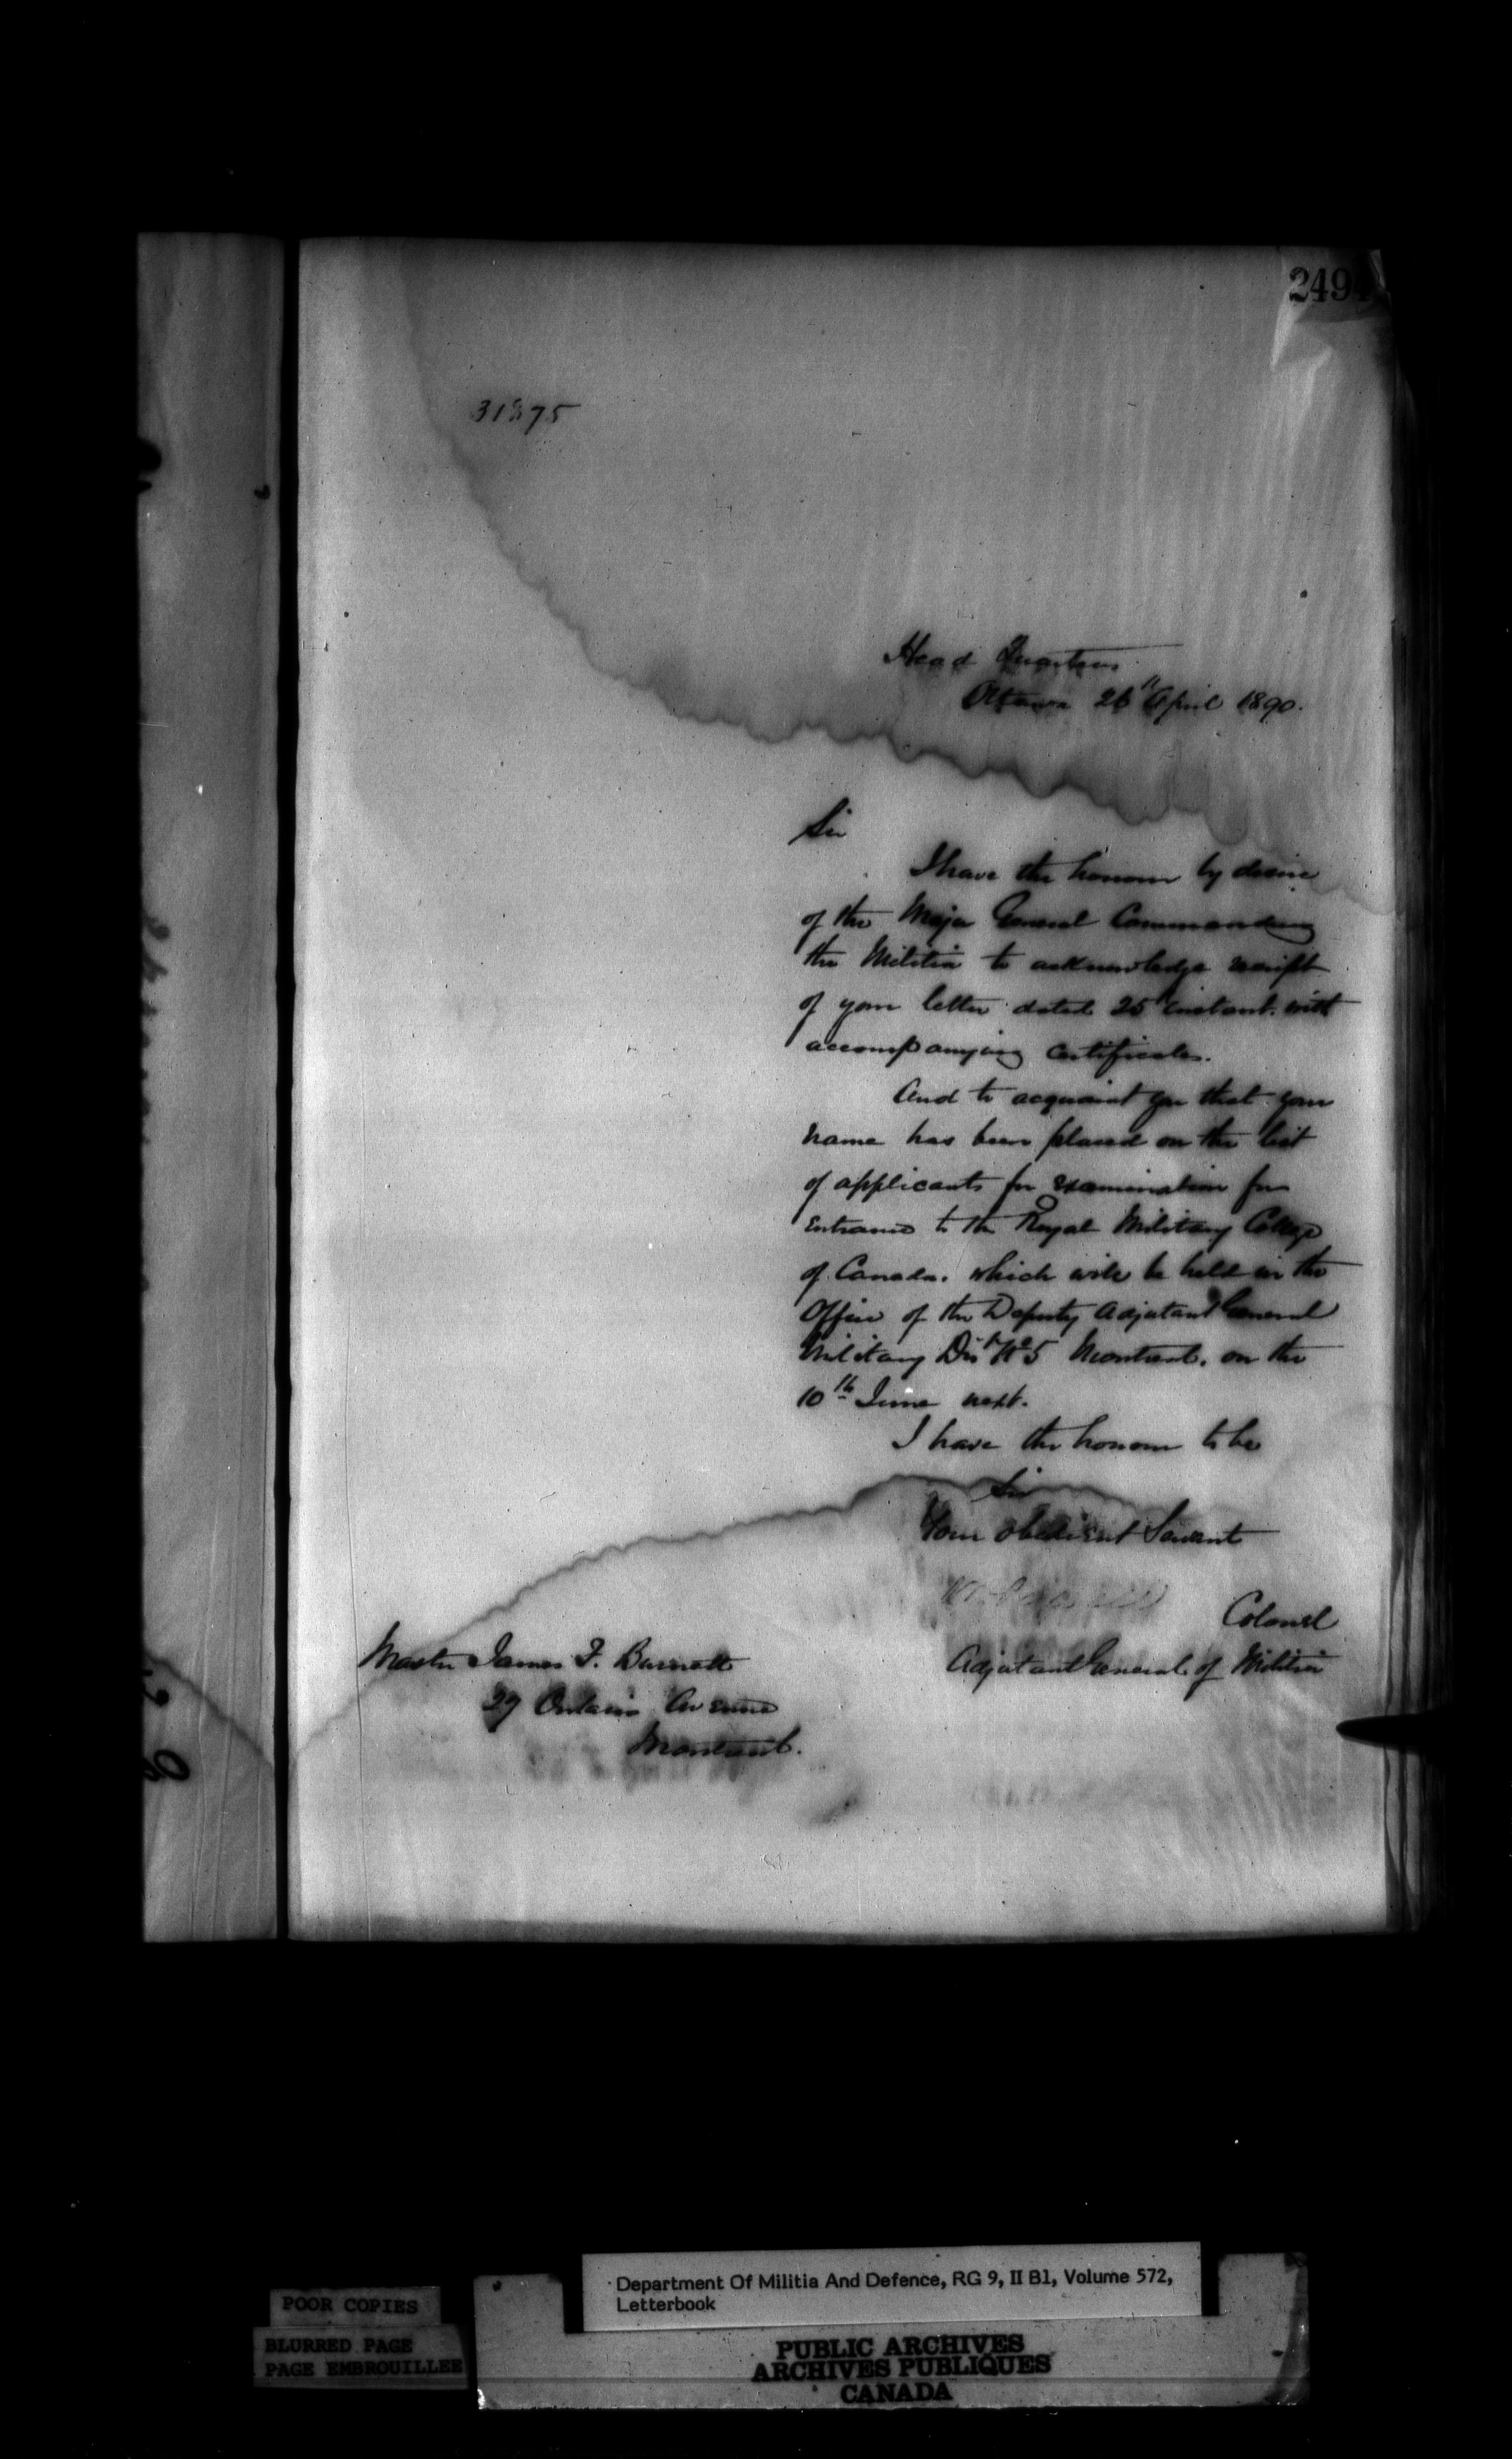 249
31875
Head Quarters
Ottawa 26th April 1890.
Sir
I have the honour by desire
of the Major General Commanding
the Militia to acknowledge receipt
of your letter dated 25 instant. with
accompanying certificates.
And to acquaint you that your
name has been placed on the list
of applicants for examination for
entrance to the Royal Military College
of Canada. which will be held in the
Office of the Deputy Adjutant General
Military Dist No 5 Montreal. on the
10th June next.
I have the honour to be
Sir
Your obedient Servant
Colonel
Adjutant General of Militia
Master James F. Burnett
29 Ontario Avenue
Montreal.
POOR COPIES
BLURRED PAGE
PAGE EMBROUILLEE
Department Of Militia And Defence, RG 9, II B1, Volume 572,
Letterbook
PUBLIC ARCHIVES
ARCHIVES PUBLIQUES
CANADA